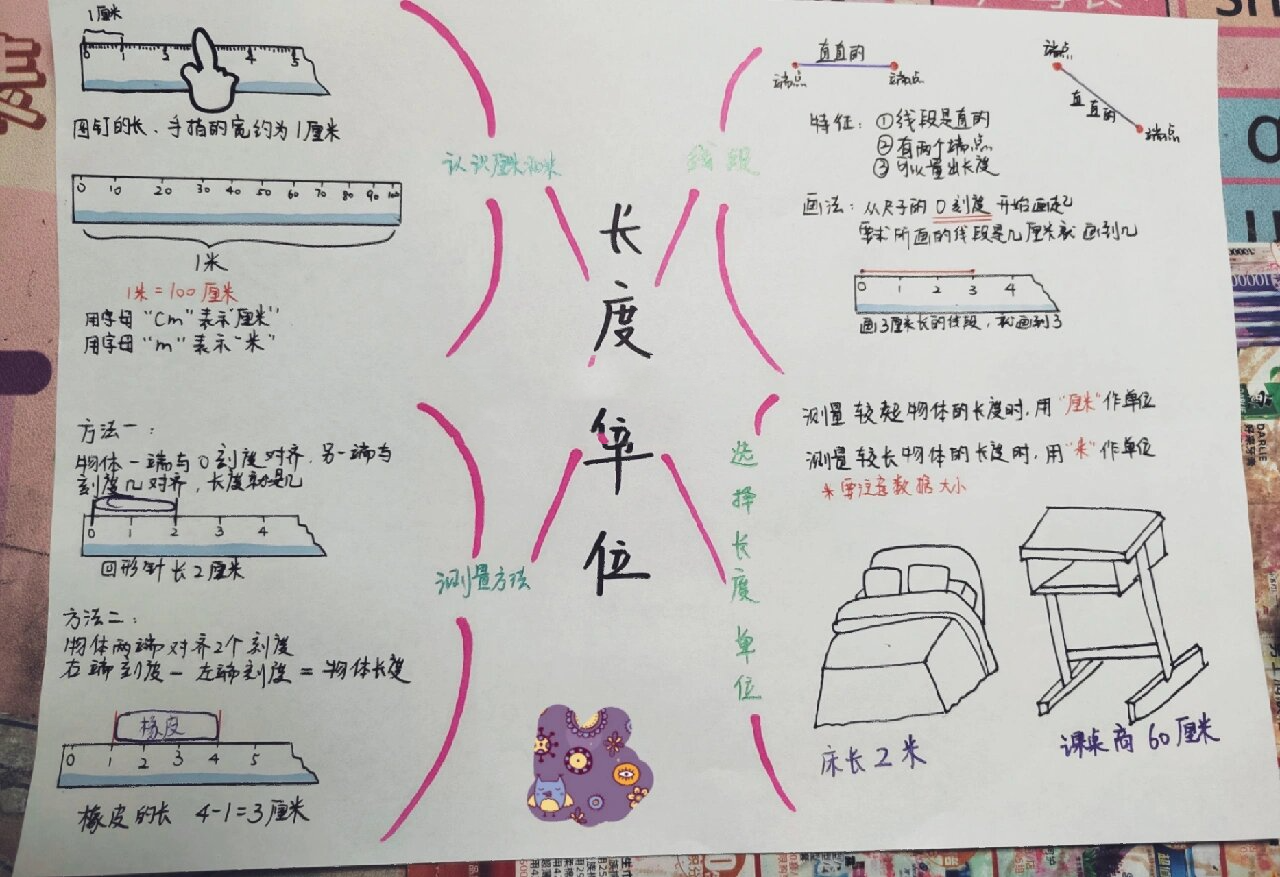 1厘米
0 1 3 4 5
图钉的长、手指的宽约为1厘米
0 10 20 30 40 50 60 70 80 90 100
1米
1米=100厘米
用字母“Cm”表示“厘米”
用字母“m”表示“米”
认识厘米和米
方法一:
物体一端与0刻度对齐,另一端与
刻度几对齐,长度就是几
0 1 2 3 4
回形针长2厘米
方法二:
物体两端对齐2个刻度
右端刻度-左端刻度=物体长度
橡皮
0 1 2 3 4 5
橡皮的长 4-1=3厘米
测量方法
长度单位
线段
直直的
端点 端点
端点
直直的
端点
特征:①线段是直的
②有两个端点
③可以量出长度
画法:从尺子的0刻度开始画起
要求所画的线段是几厘米就画到几
0 1 2 3 4
画3厘米长的线段,就画到3
选择长度单位
测量较短物体的长度时,用“厘米”作单位
测量较长物体的长度时,用“米”作单位
*要注意数据大小
床长2米
课桌高60厘米